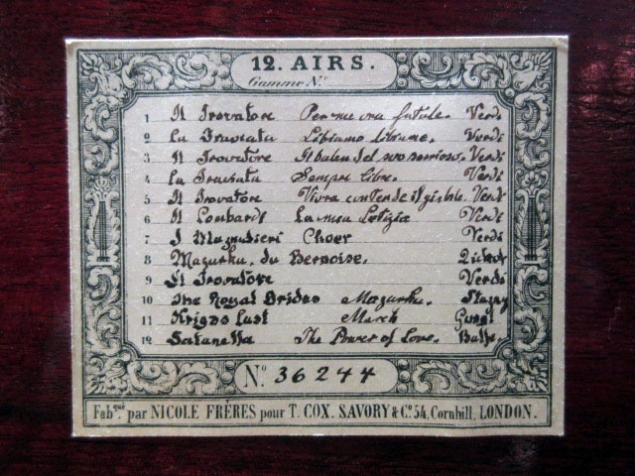 12. AIRS.
Gamme Nº
1 Il Trovatore Per me ora fatale. Verdi
2 La Traviata Libiamo libiame. Verdi
3 Il Trovatore Il balen del suo sorriso. Verdi
4 La Traviata Sempre libre. Verdi
5 Il Trovatore Vivra contende il giubilo. Verdi
6 Il Lombardi La mia Letizia Verdi
7 I Choer Verdi
8 Mazurka. du
9 Il Trovatore Verdi
10 The Royal Brides Mazurka.
11 Krigas Lust March Gungl
12 Satanella The Power of Love. Balfe.
Nº 36244
Fabqué par NICOLE FRÈRES pour T. COX. SAVORY & Cº 54, Cornhill, LONDON.